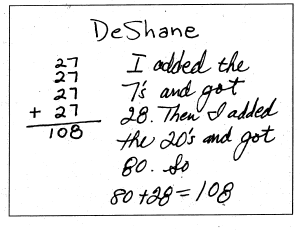 DeShane
27
27
27
+ 27
108
I added the
7's and got
28. Then I added
the 20's and got
80. So
80 + 28 = 108